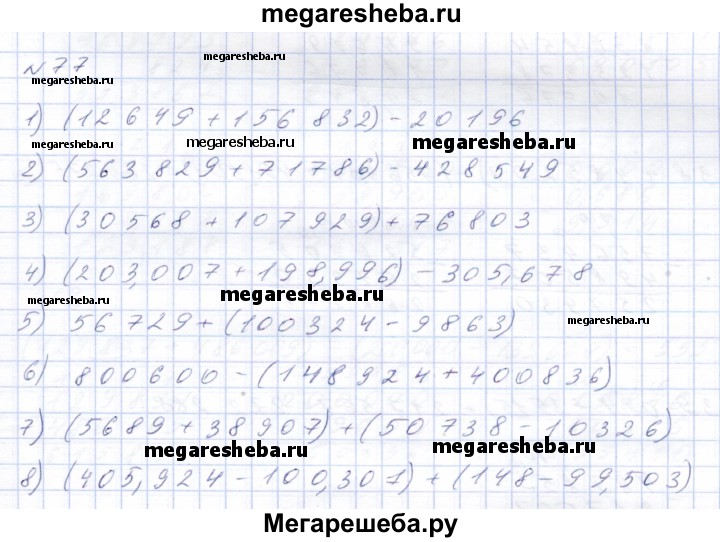 megaresheba.ru
№77
megaresheba.ru
megaresheba.ru
1) (12 649 + 156 832) - 20 196
megaresheba.ru
megaresheba.ru
megaresheba.ru
2) (563 829 + 71 786) - 428 549
3) (30 568 + 107 929) + 76 803
4) (203,007 + 198,996) - 305,678
megaresheba.ru
megaresheba.ru
megaresheba.ru
5) 56 729 + (100 324 - 9863)
6) 800 600 - (148 924 + 400 836)
7) (5689 + 38 907) + (50 738 - 10 326)
megaresheba.ru
megaresheba.ru
8) (405,924 - 100,307) + (148 - 99,503)
Мегарешеба.ру